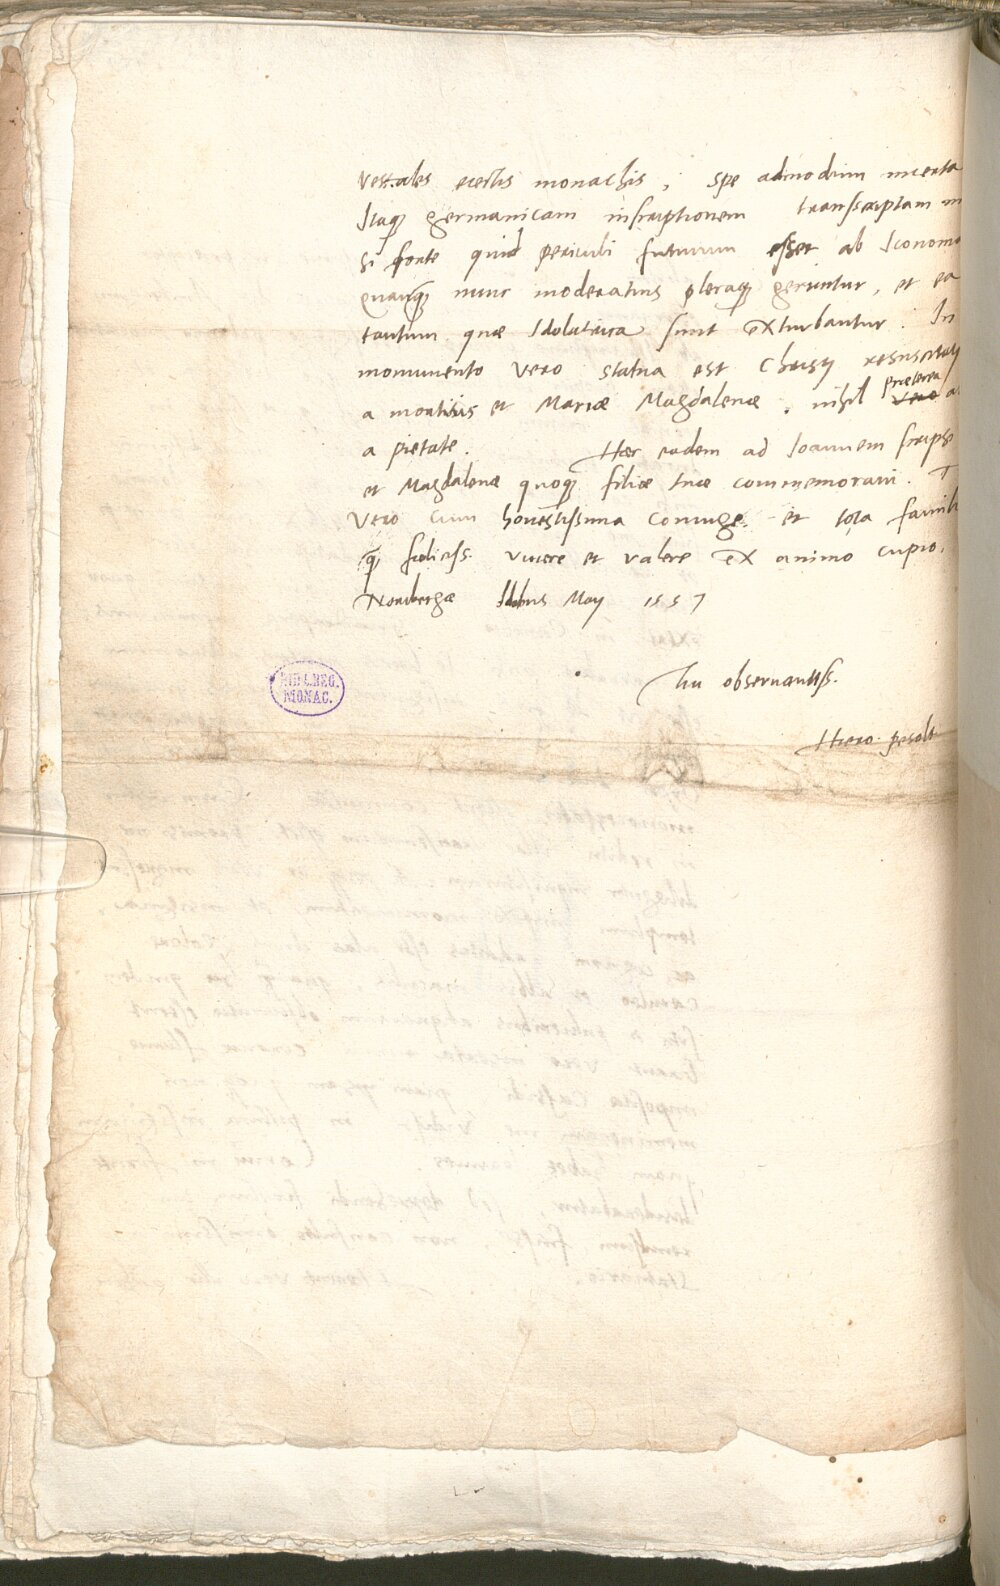 Vestales eiectis monachis, spe admodum incerta
Itaq germanicam inscriptionem transscriptam
Si forte quid periculi futurum esset ab Iconom
quanq nunc moderatius pleraq geruntur, et ea
tantum quæ Idolatrica sunt exturbantur. In
monumento vero statua est Christi resuscitati
a mortuis et Mariæ Magdalenæ, nihil præterea
a pietate. Hæc eadem ad Ioannem scripsi
et Magdalenæ quoq filiæ tuæ commemoravi. T
Vero cum honestissima coniuge et tota famili
q fœliciss. vivere et valere ex animo cupio.
Noribergæ Idibus May 1557
Tui observantiss.
Hiero. pesolt
BIBL. REG.
MONAC.